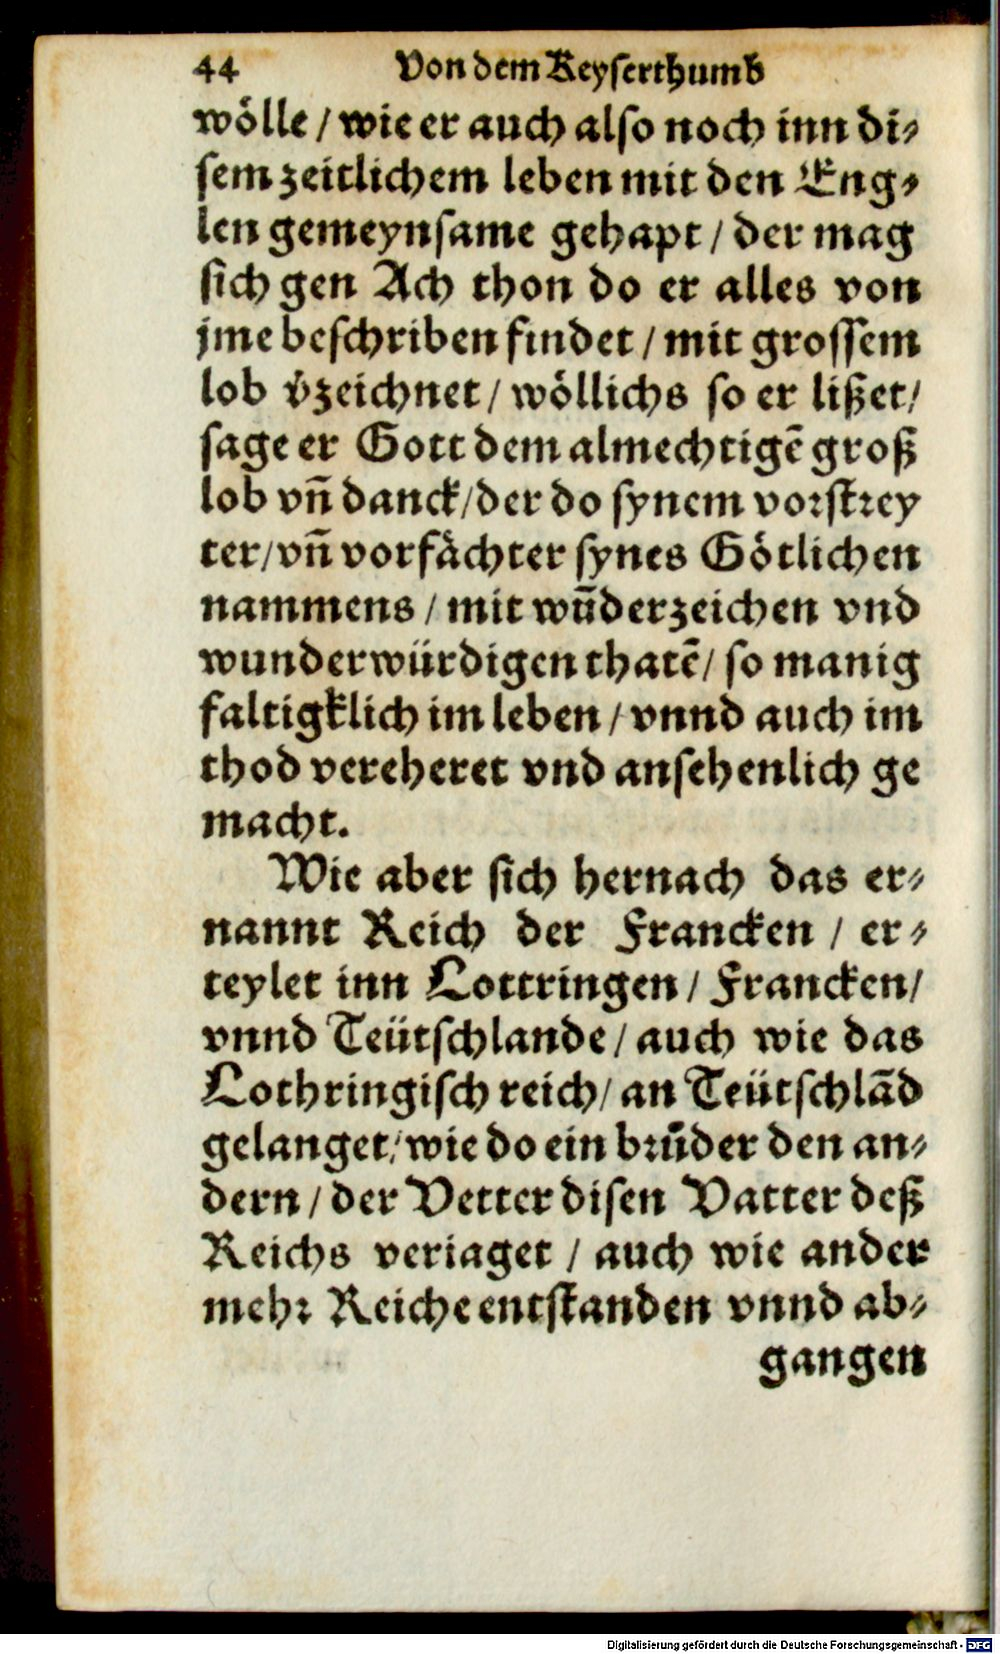 44 Von dem Keyserthumb
wölle / wie er auch also noch inn di⸗
sem zeitlichem leben mit den Eng⸗
len gemeynsame gehapt / der mag
sich gen Ach thon do er alles von
jme beschriben findet / mit grossem
lob v̈zeichnet / wöllichs so er lißet /
sage er Gott dem almechtigē groß
lob vn̄ danck / der do synem vorstrey
ter / vn̄ vorfächter synes Götlichen
nammens / mit wūderzeichen vnd
wunderwürdigen thatē / so manig
faltigklich im leben / vnnd auch im
thod vereheret vnd ansehenlich ge
macht.
Wie aber sich hernach das er⸗
nannt Reich der Francken / er⸗
teylet inn Lottringen / Francken /
vnnd Teütschlande / auch wie das
Lothringisch reich / an Teütschlād
gelanget / wie do ein brůder den an⸗
dern / der Vetter disen Vatter deß
Reichs veriaget / auch wie ander
mehr Reiche entstanden vnnd ab⸗
gangen
Digitalisierung gefördert durch die Deutsche Forschungsgemeinschaft - DFG